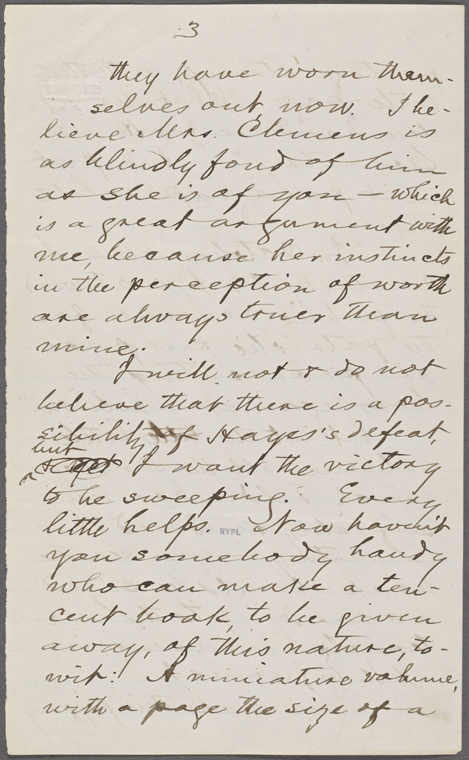 3
they have worn them-
selves out, now. I be-
lieve Mrs. Clemens is
as blindly fond of him
as she is of you — which
is a great argument with
me, because her instincts
in the perception of worth
are always truer than
mine.
I will not & do not
believe that there is a pos-
sibility of Hayes's defeat,
but
I want the victory
to be sweeping. Every
little helps. Now haven't
NYPL
you somebody handy
who can make a ten-
cent book, to be given
away, of this nature, to-
wit: A miniature volume,
with a page the size of a